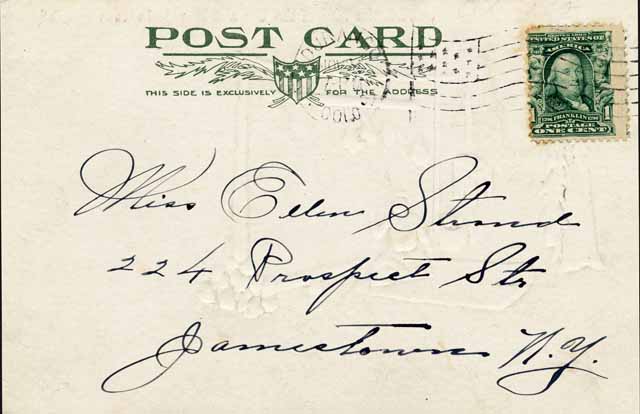 POST CARD
THIS SIDE IS EXCLUSIVELY FOR THE ADDRESS
UNITED STATES OF
AMERICA
FRANKLIN
POSTAGE
ONE CENT
1
Miss Ellen Strand
224 Prospect Str
Jamestown N.Y.